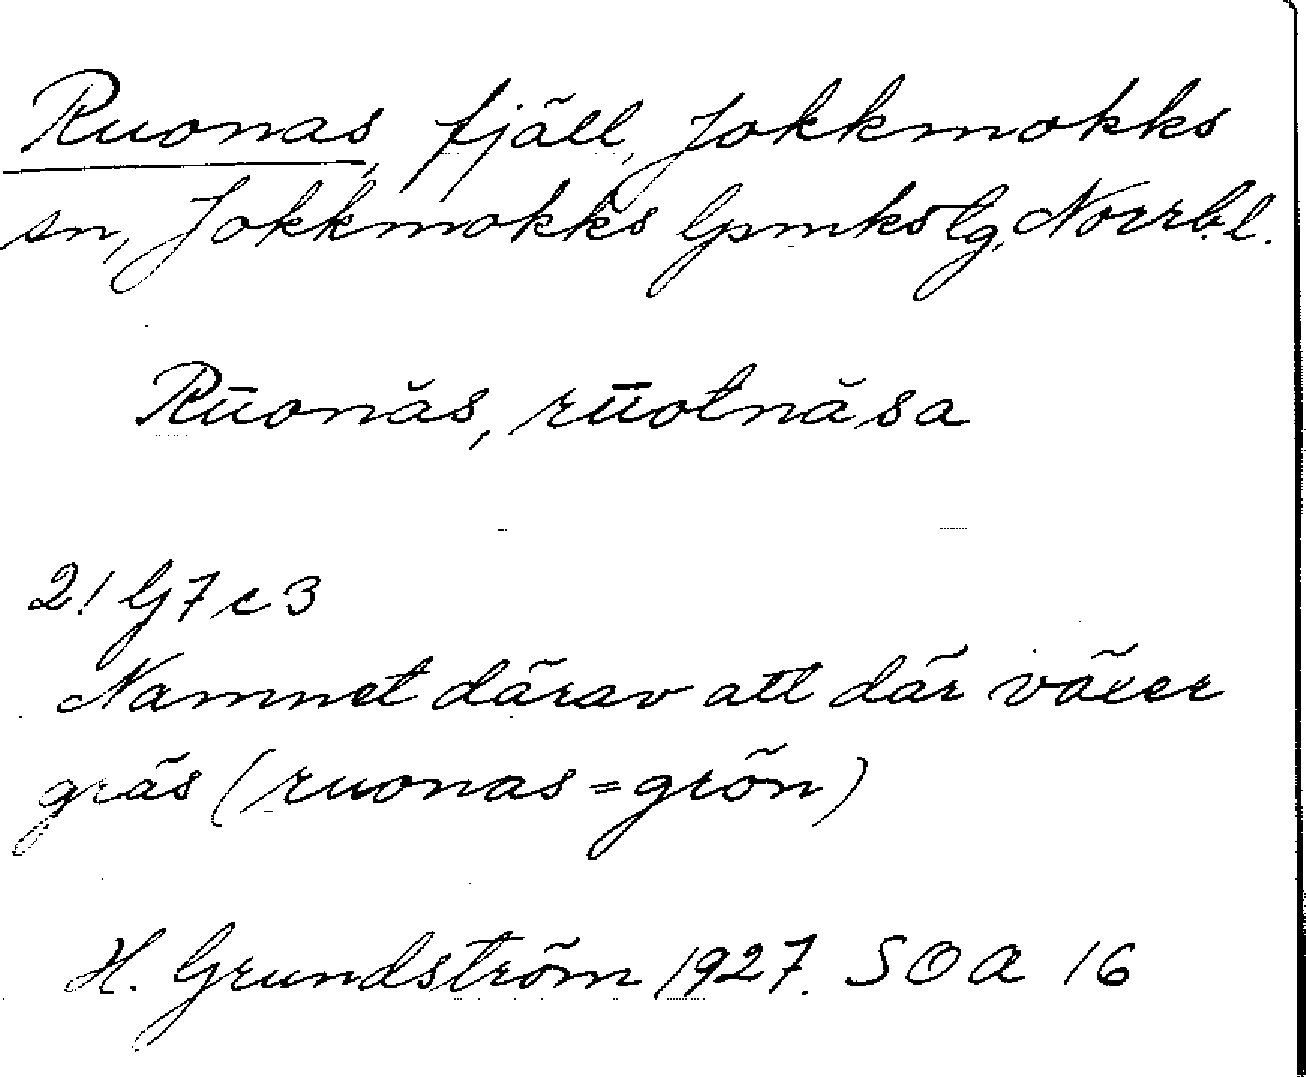 Ruonas, fjäll, Jokkmokks
sn, Jokkmokks lpmkslg, Norrb.l.
Rūonăs, rūotnăsa
2! G7c3
Namnet därav att där växer
gräs (ruonas = grön)
H. Grundström 1927. SOA 16